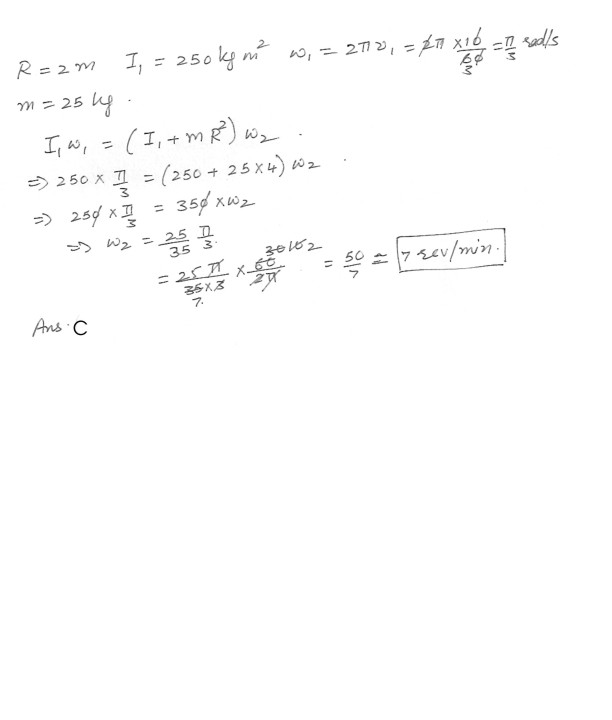 R = 2 m I₁ = 250 kg m² ω₁ = 2πν₁ = 2π × 10/60 = π/3 rad/s
m = 25 kg .
I₁ω₁ = (I₁ + mR²) ω₂ .
⇒ 250 × π/3 = (250 + 25 × 4) ω₂ .
⇒ 250 × π/3 = 350 × ω₂
⇒ ω₂ = 25/35 π/3.
= 25 π/35×3 × 60/2π = 50/7 ≃ 7 rev/min.
7.
Ans. C